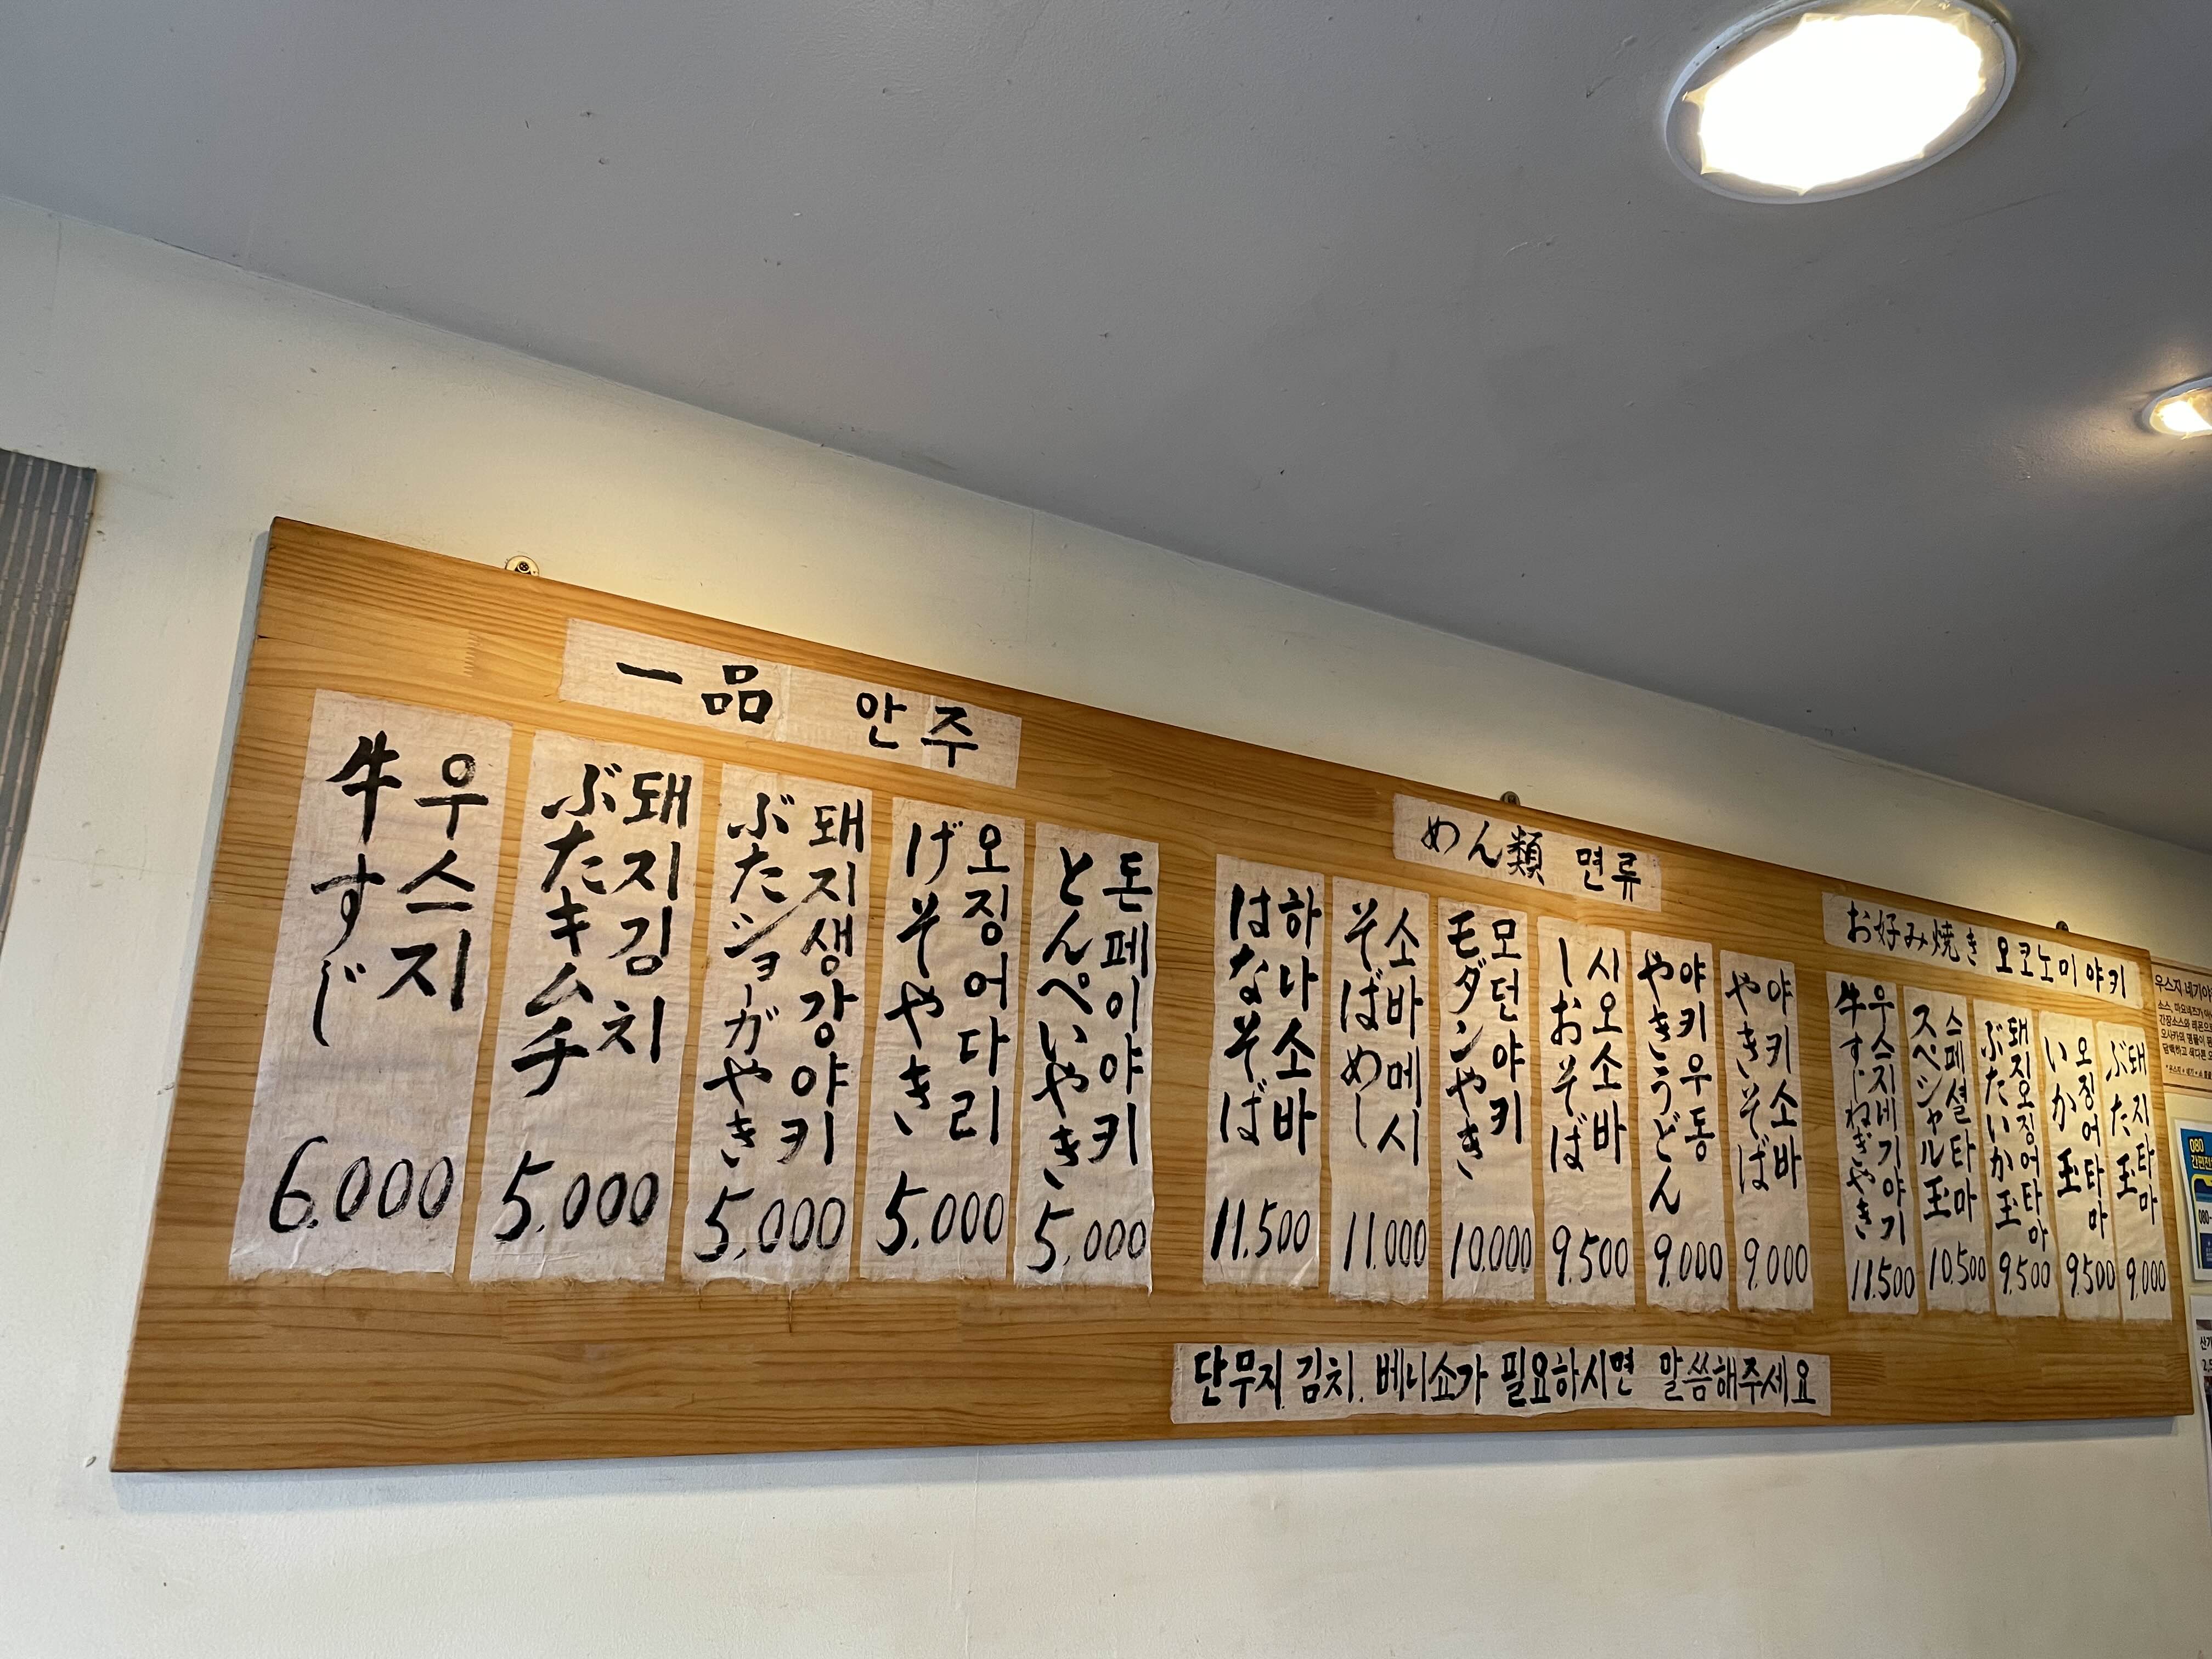 一品 안주
牛すじ 우스지 6.000
ぶたキムチ 돼지김치 5.000
ぶたショーガやき 돼지생강야키 5.000
げそやき 오징어다리 5.000
とんぺいやき 돈페이야키 5.000
めん類 면류
はなそば 하나소바 11.500
そばめし 소바메시 11.000
モダンやき 모던야키 10.000
しおそば 시오소바 9.500
やきうどん 야키우동 9.000
やきそば 야키소바 9.000
お好み焼き 오코노미야키
牛すじねぎやき 우스지네기야기 11.500
スペシャル玉 스페셜타마 10.500
ぶたいか玉 돼지오징어타마 9.500
いか玉 오징어타마 9.500
ぶた玉 돼지타마 9.000
단무지. 김치. 베니쇼가 필요하시면 말씀해주세요
우스지 네기야
080